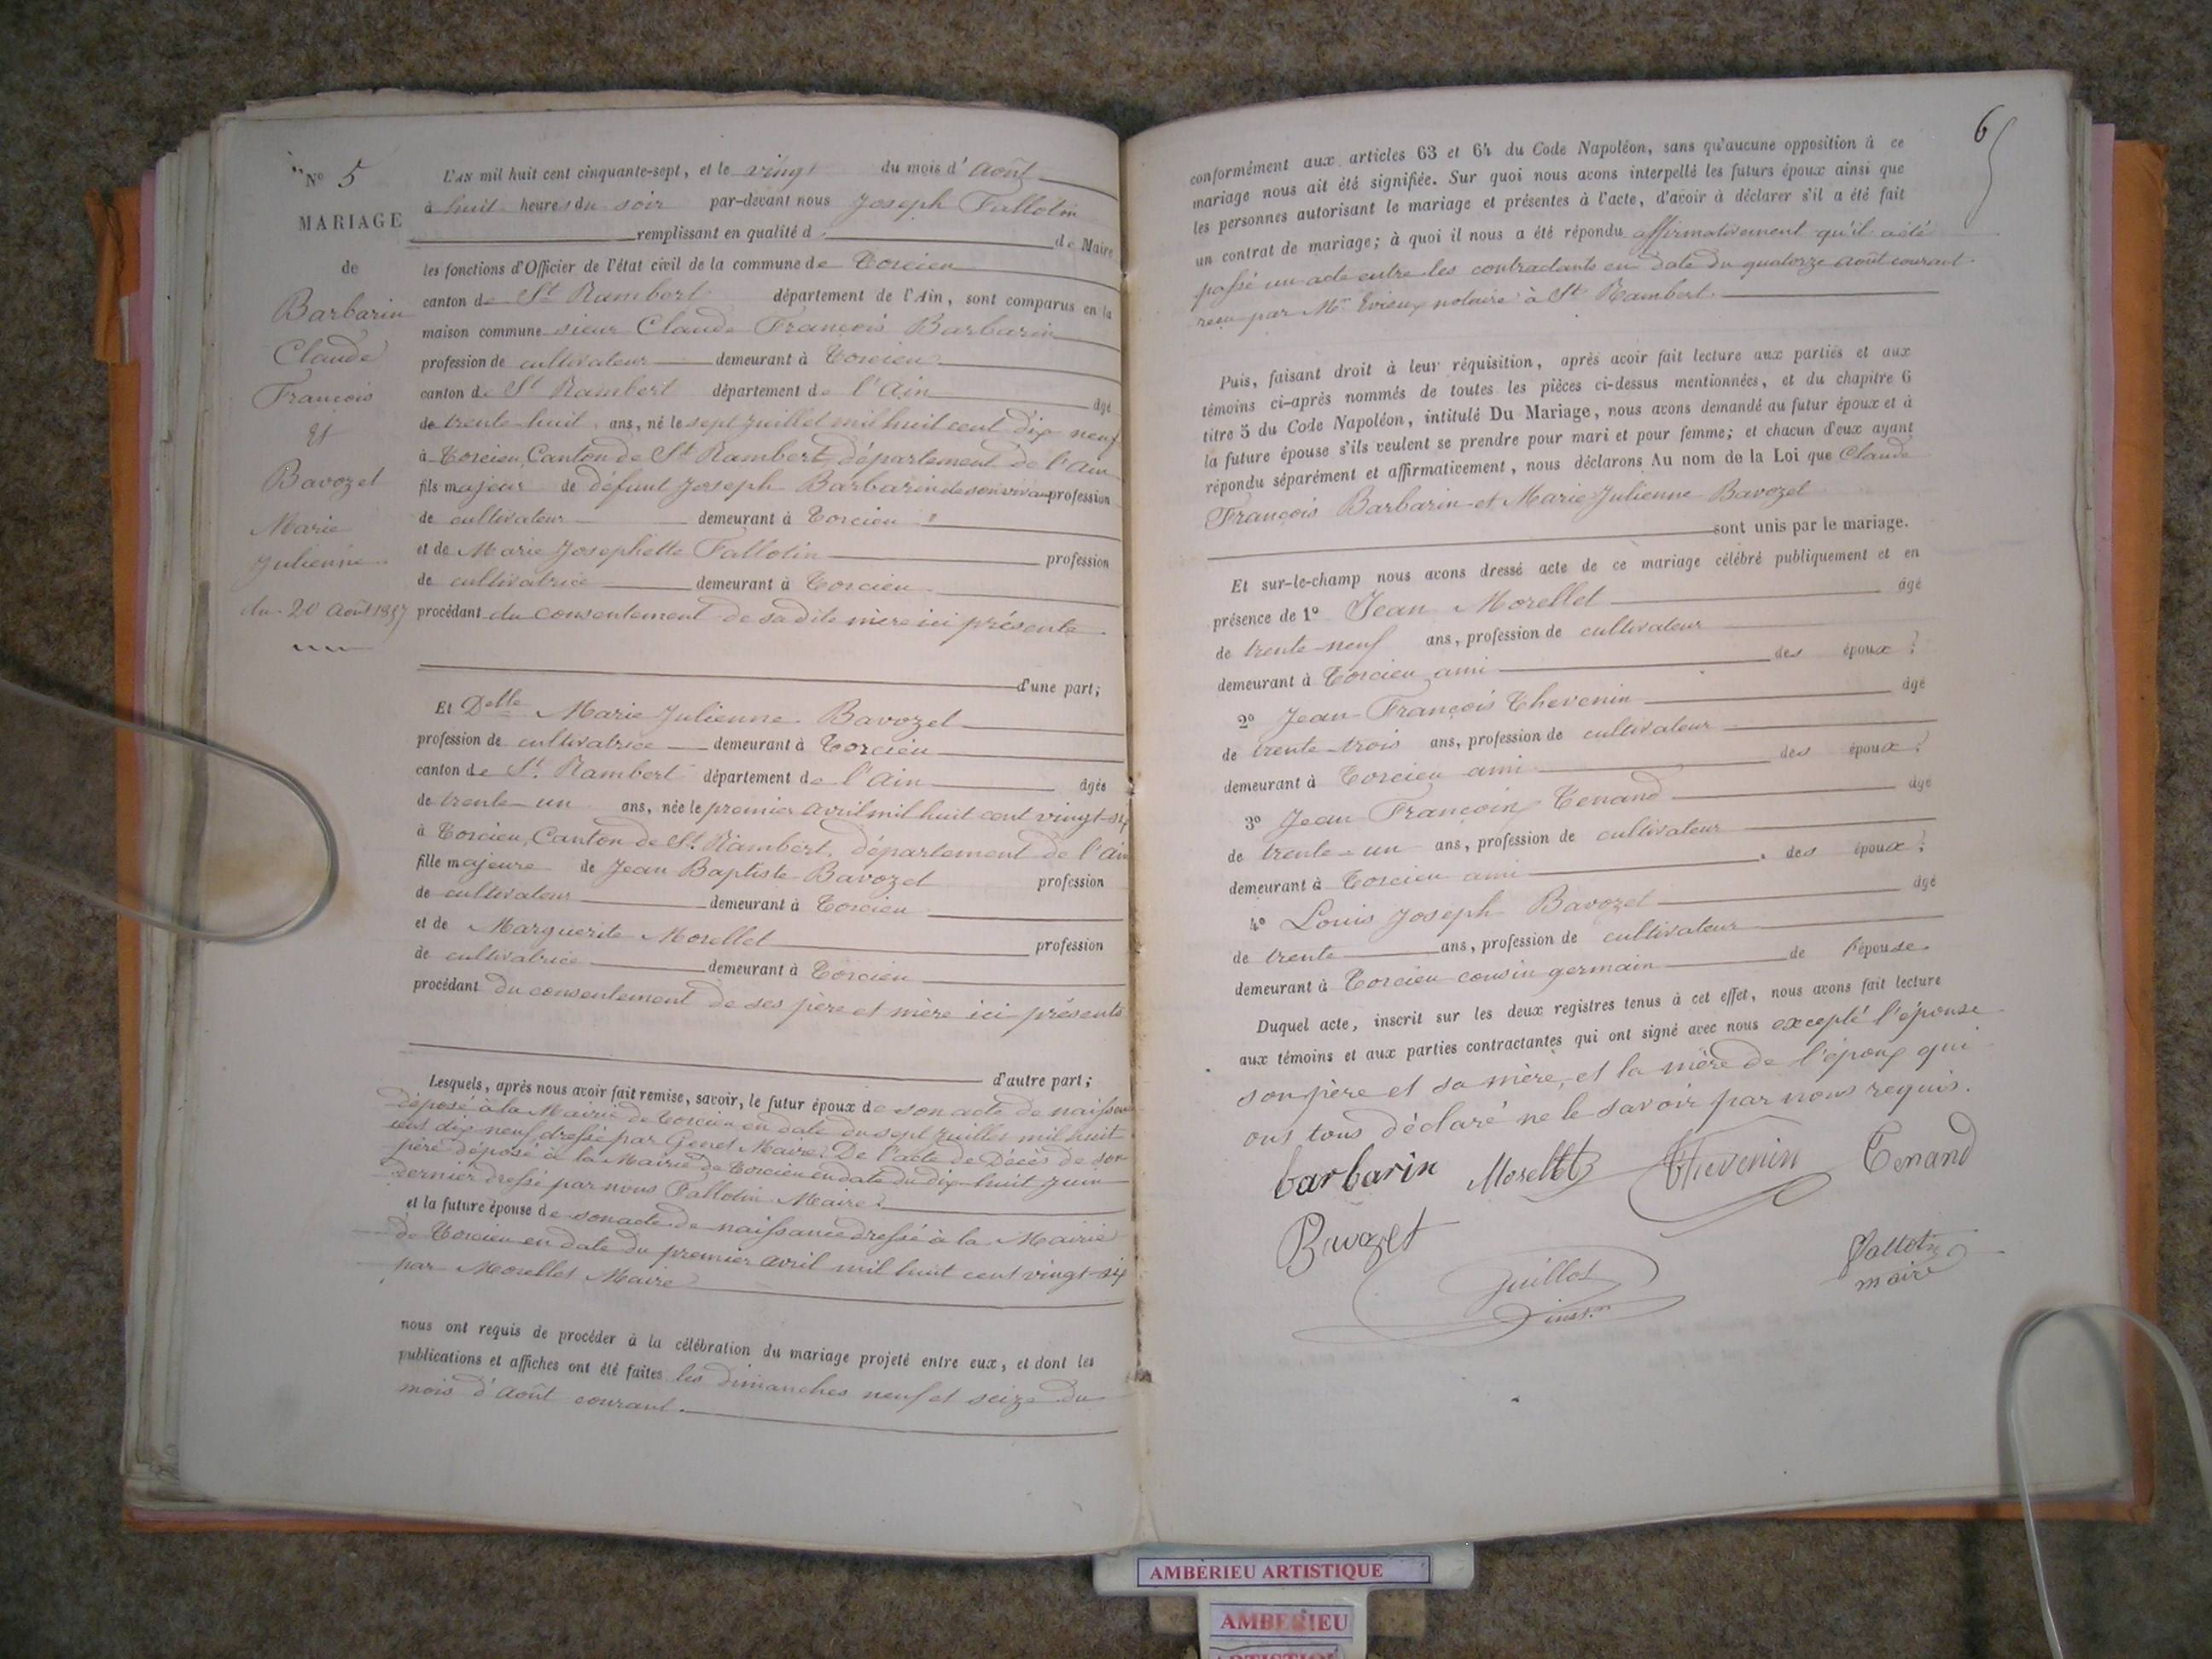 N° 5
MARIAGE
de
Barbarin
Claude
François
Et
Bavozet
Marie
Julienne
du 20 Août 1857
L'AN mil huit cent cinquante-sept, et le vingt du mois d'Août
à huit heures du soir par-devant nous Joseph Fallotin
remplissant en qualité de Maire
les fonctions d'Officier de l'état civil de la commune de Torcieu
canton de St Rambert département de l'Ain, sont comparus en la
maison commune sieur Claude François Barbarin
profession de cultivateur demeurant à Torcieu
canton de St Rambert département de l'Ain âgé
de trente huit ans, né le sept Juillet mil huit cent dix neuf
à Torcieu, Canton de St Rambert, département de l'Ain
fils majeur de défunt Joseph Barbarin de son vivant profession
de cultivateur demeurant à Torcieu
et de Marie Josephette Fallotin profession
de cultivatrice demeurant à Torcieu
procédant du consentement de sa dite mère ici présente
d'une part;
Et Delle Marie Julienne Bavozet
profession de cultivatrice demeurant à Torcieu
canton de St. Rambert département de l'Ain âgée
de trente un ans, née le premier avril mil huit cent vingt-six
à Torcieu, Canton de St. Rambert, département de l'Ain
fille majeure de Jean Baptiste Bavozet profession
de cultivateur demeurant à Torcieu
et de Marguerite Morellet profession
de cultivatrice demeurant à Torcieu
procédant du consentement de ses père et mère ici présents
d'autre part;
Lesquels, après nous avoir fait remise, savoir, le futur époux de son acte de naissance
déposé à la Mairie de Torcieu en date du sept Juillet mil huit
cent dix neuf dressé par Genet Maire. De l'acte de Décès de son
père déposé à la Mairie de Torcieu en date du dix-huit Juin
dernier dressé par nous Fallotin Maire.
et la future épouse de son acte de naissance dressé à la Mairie
de Torcieu en date du premier avril mil huit cent vingt-six
par Morellet Maire
nous ont requis de procéder à la célébration du mariage projeté entre eux, et dont les
publications et affiches ont été faites les dimanches neuf et seize du
mois d'Août courant.
6
conformément aux articles 63 et 64 du Code Napoléon, sans qu'aucune opposition à ce
mariage nous ait été signifiée. Sur quoi nous avons interpellé les futurs époux ainsi que
les personnes autorisant le mariage et présentes à l'acte, d'avoir à déclarer s'il a été fait
un contrat de mariage; à quoi il nous a été répondu affirmativement qu'il a été
passé un acte entre les contractants en date du quatorze Août courant
reçu par Me notaire à St Rambert.
Puis, faisant droit à leur réquisition, après avoir fait lecture aux parties et aux
témoins ci-après nommés de toutes les pièces ci-dessus mentionnées, et du chapitre 6
titre 5 du Code Napoléon, intitulé Du Mariage, nous avons demandé au futur époux et à
la future épouse s'ils veulent se prendre pour mari et pour femme; et chacun d'eux ayant
répondu séparément et affirmativement, nous déclarons Au nom de la Loi que Claude
François Barbarin et Marie Julienne Bavozet
sont unis par le mariage.
Et sur-le-champ nous avons dressé acte de ce mariage célébré publiquement et en
présence de 1° Jean Morellet âgé
de trente-neuf ans, profession de cultivateur
demeurant à Torcieu ami des époux;
2° Jean François Thevenin âgé
de trente-trois ans, profession de cultivateur
demeurant à Torcieu ami des époux;
3° Jean François Tenand âgé
de trente-un ans, profession de cultivateur
demeurant à Torcieu ami des époux;
4° Louis Joseph Bavozet âgé
de trente ans, profession de cultivateur
demeurant à Torcieu cousin germain de l'épouse
Duquel acte, inscrit sur les deux registres tenus à cet effet, nous avons fait lecture
aux témoins et aux parties contractantes qui ont signé avec nous excepté l'épouse
son père et sa mère, et la mère de l'époux qui
ont tous déclaré ne le savoir par nous requis.
barbarin Morellet Thevenin Tenand
Bavozet
Guillot
inst.
Fallotin
maire
AMBERIEU ARTISTIQUE
AMBERIEU
ARTISTIQUE